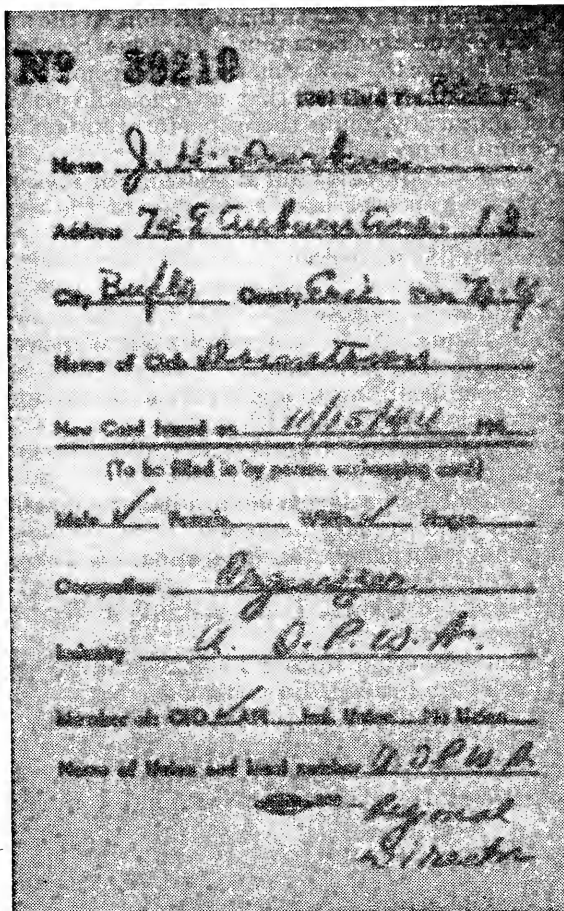 No 39210
Name J. H. Durkin
Address 74 E Auburn Ave. 12
City Buflo County Erie State N.Y.
Name of Club
New Card Issued on 11/15/44 194
(To be filled in by person exchanging card)
Male ✓ Female White ✓ Negro
Occupation Organizer
Industry U. O. P. W. A.
Member of: CIO ✓ AFL Ind. Union No Union
Name of Union and local number U O P W A
Regional
Director